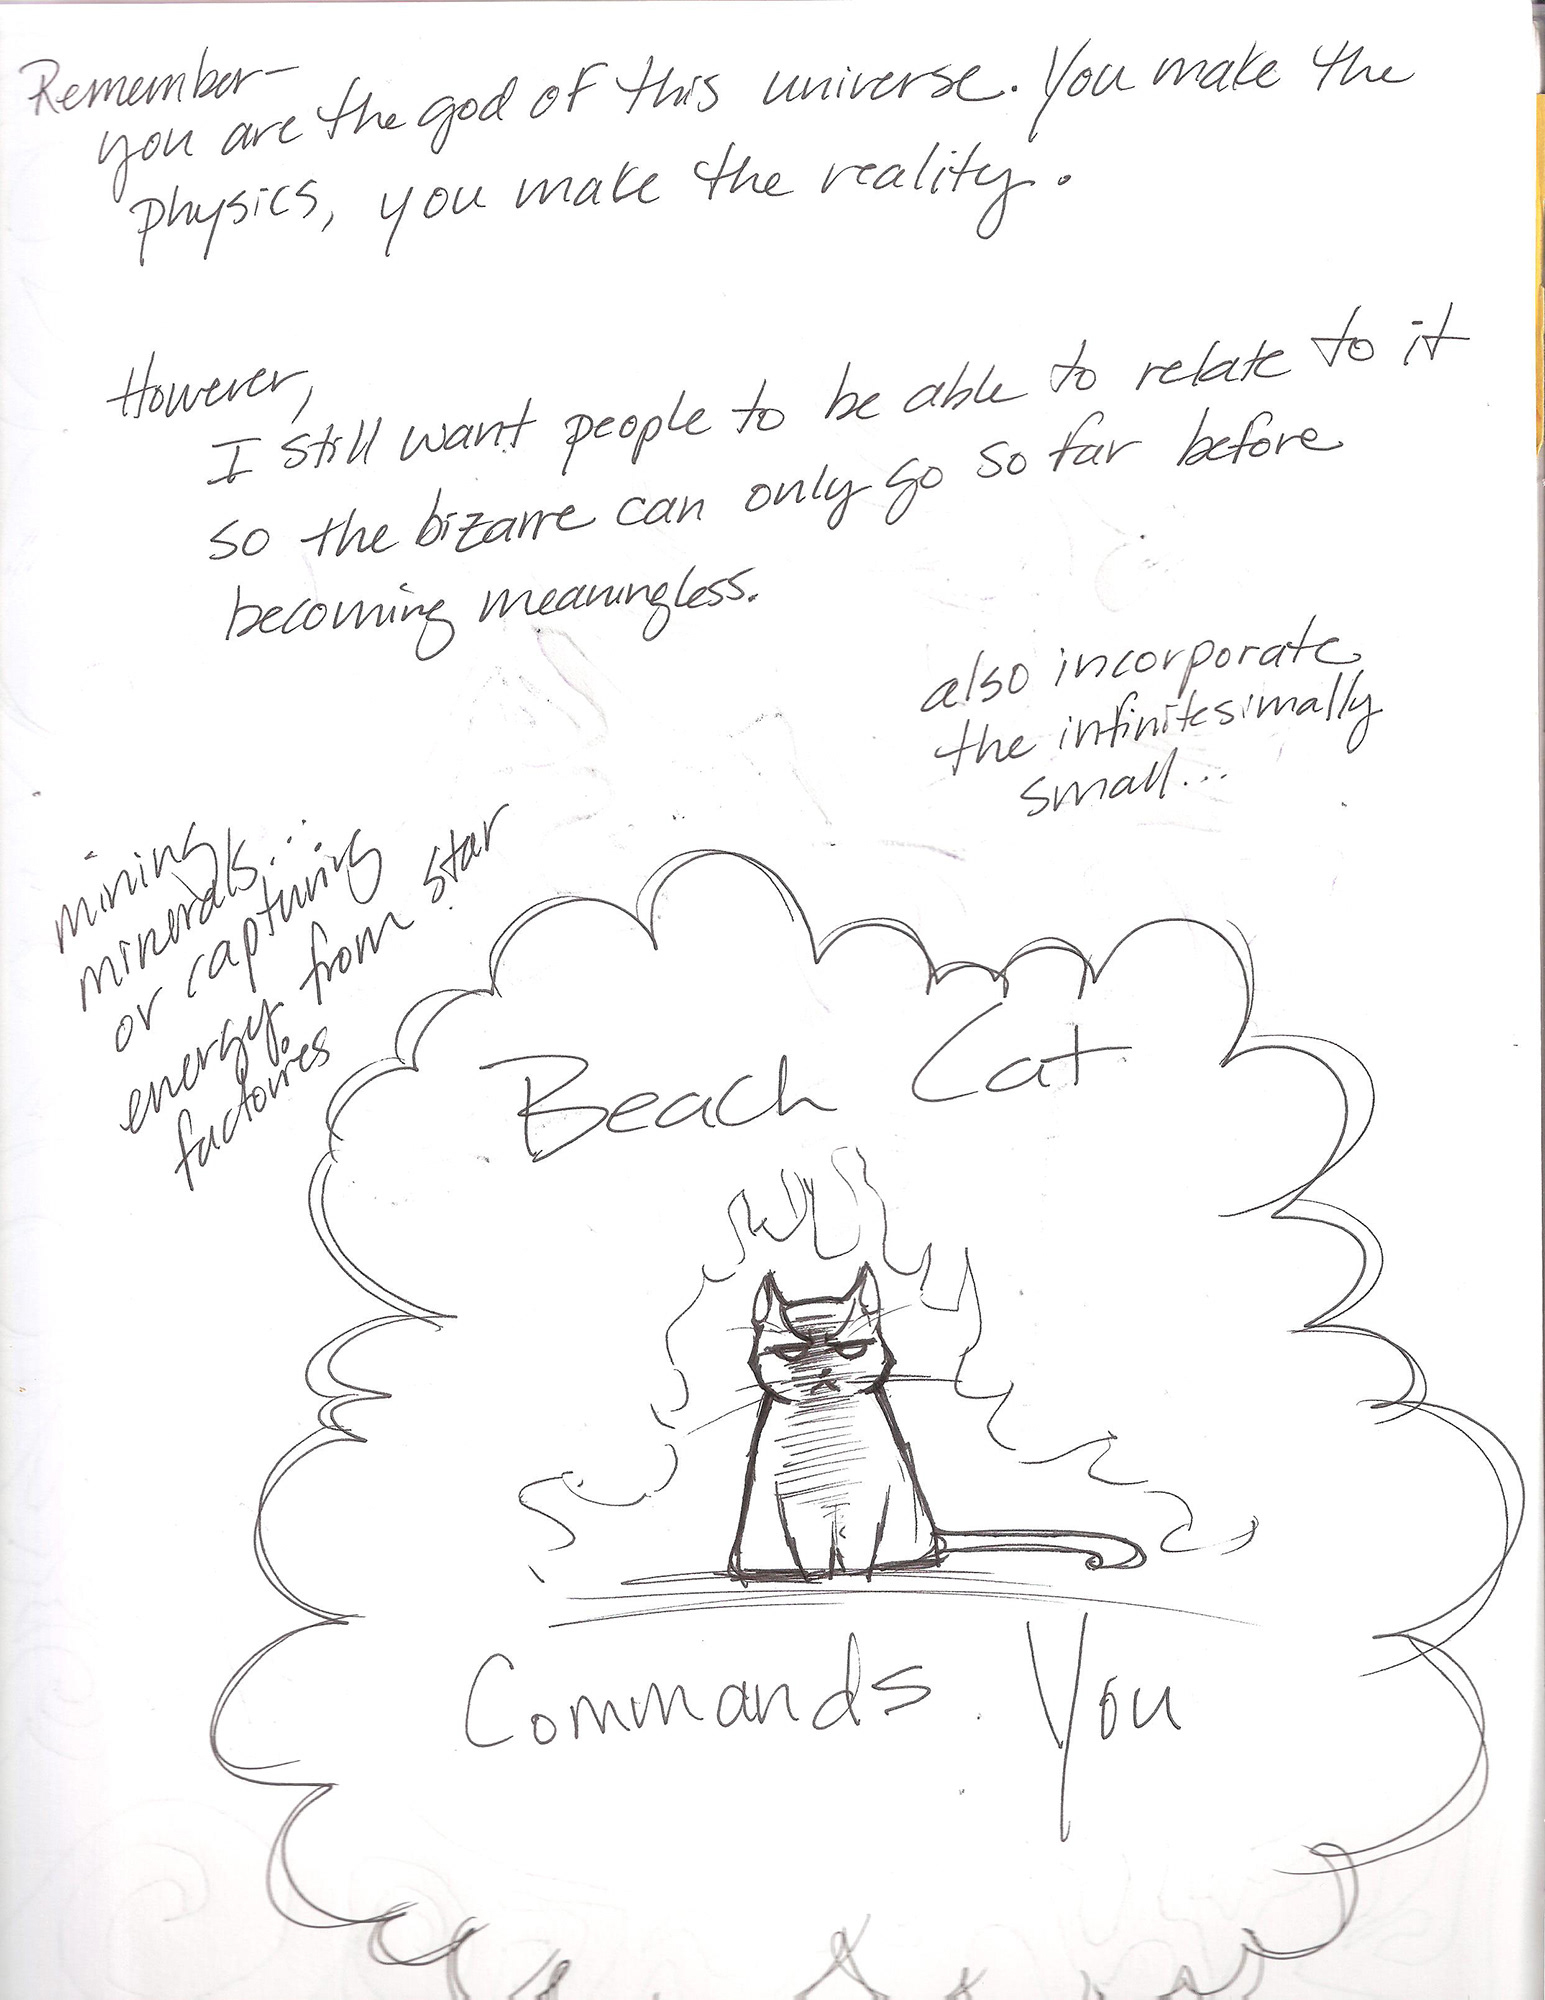 Remember-
you are the god of this universe. You make the
physics, you make the reality.
However,
I still want people to be able to relate to it
so the bizarre can only go so far before
becoming meaningless.
also incorporate
the infinitesimally
small...
mining
minerals...
or capturing
energy from star
factoires
Beach Cat
Commands You